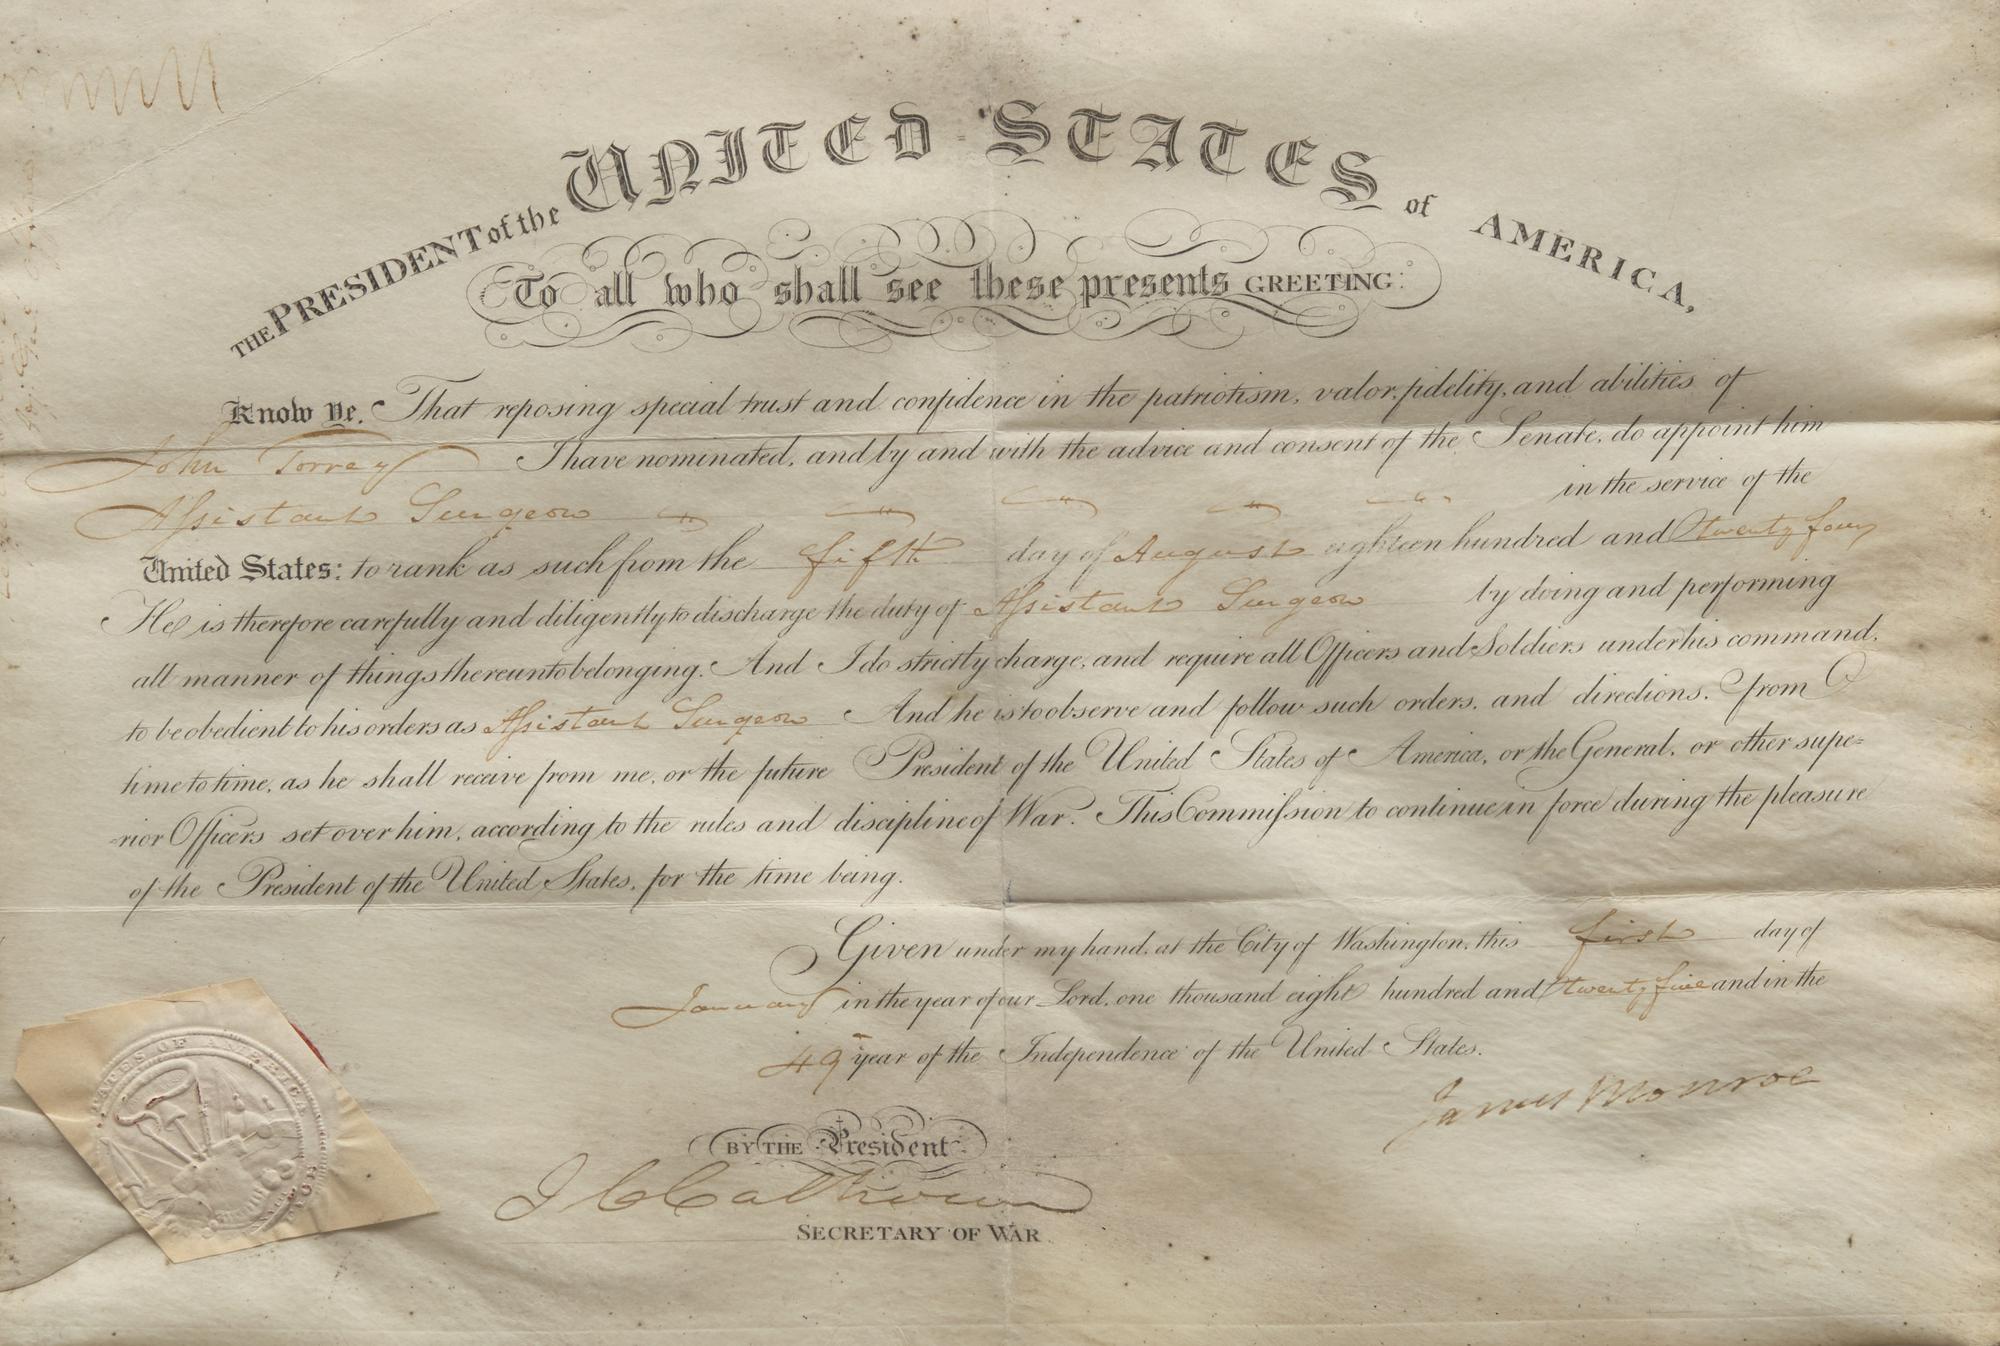 THE PRESIDENT of the UNITED STATES of AMERICA,
To all who shall see these presents GREETING:
Know Ye, That reposing special trust and confidence in the patriotism, valor, fidelity, and abilities of
John Torrey I have nominated, and by and with the advice and consent of the Senate, do appoint him
Assistant Surgeon in the service of the
United States: to rank as such from the fifth day of August eighteen hundred and twenty four
He is therefore carefully and diligently to discharge the duty of Assistant Surgeon by doing and performing
all manner of things thereunto belonging. And I do strictly charge, and require all Officers and Soldiers under his command,
to be obedient to his orders as Assistant Surgeon And he is to observe and follow such orders, and directions, from
time to time, as he shall receive from me, or the future President of the United States of America, or the General, or other supe=
rior Officers set over him, according to the rules and discipline of War. This Commission to continue in force during the pleasure
of the President of the United States, for the time being.
Given under my hand, at the City of Washington, this first day of
January in the year of our Lord, one thousand eight hundred and twenty five and in the
49 year of the Independence of the United States.
James Monroe
BY THE President
J C Calhoun
SECRETARY OF WAR
STATES OF AMERICA